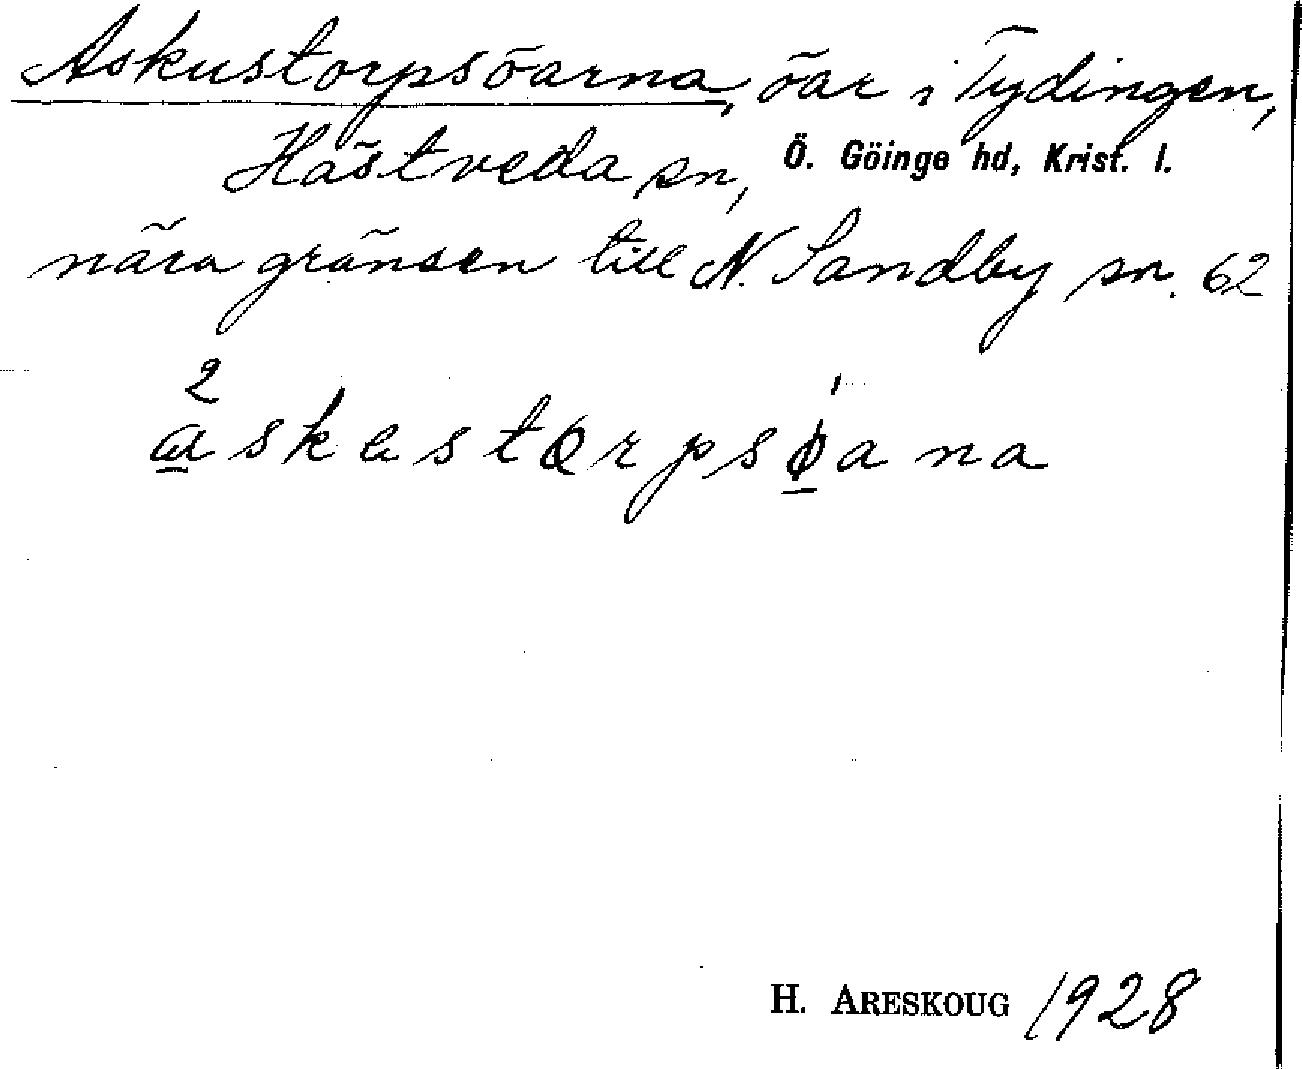 Askustorpsöarna, öar i Tydingen,
Hästveda sn, Ö. Göinge hd, Krist. l.
nära gränsen till N. Sandby sn. 62
2 1
askastorpsøana
H. ARESKOUG 1928